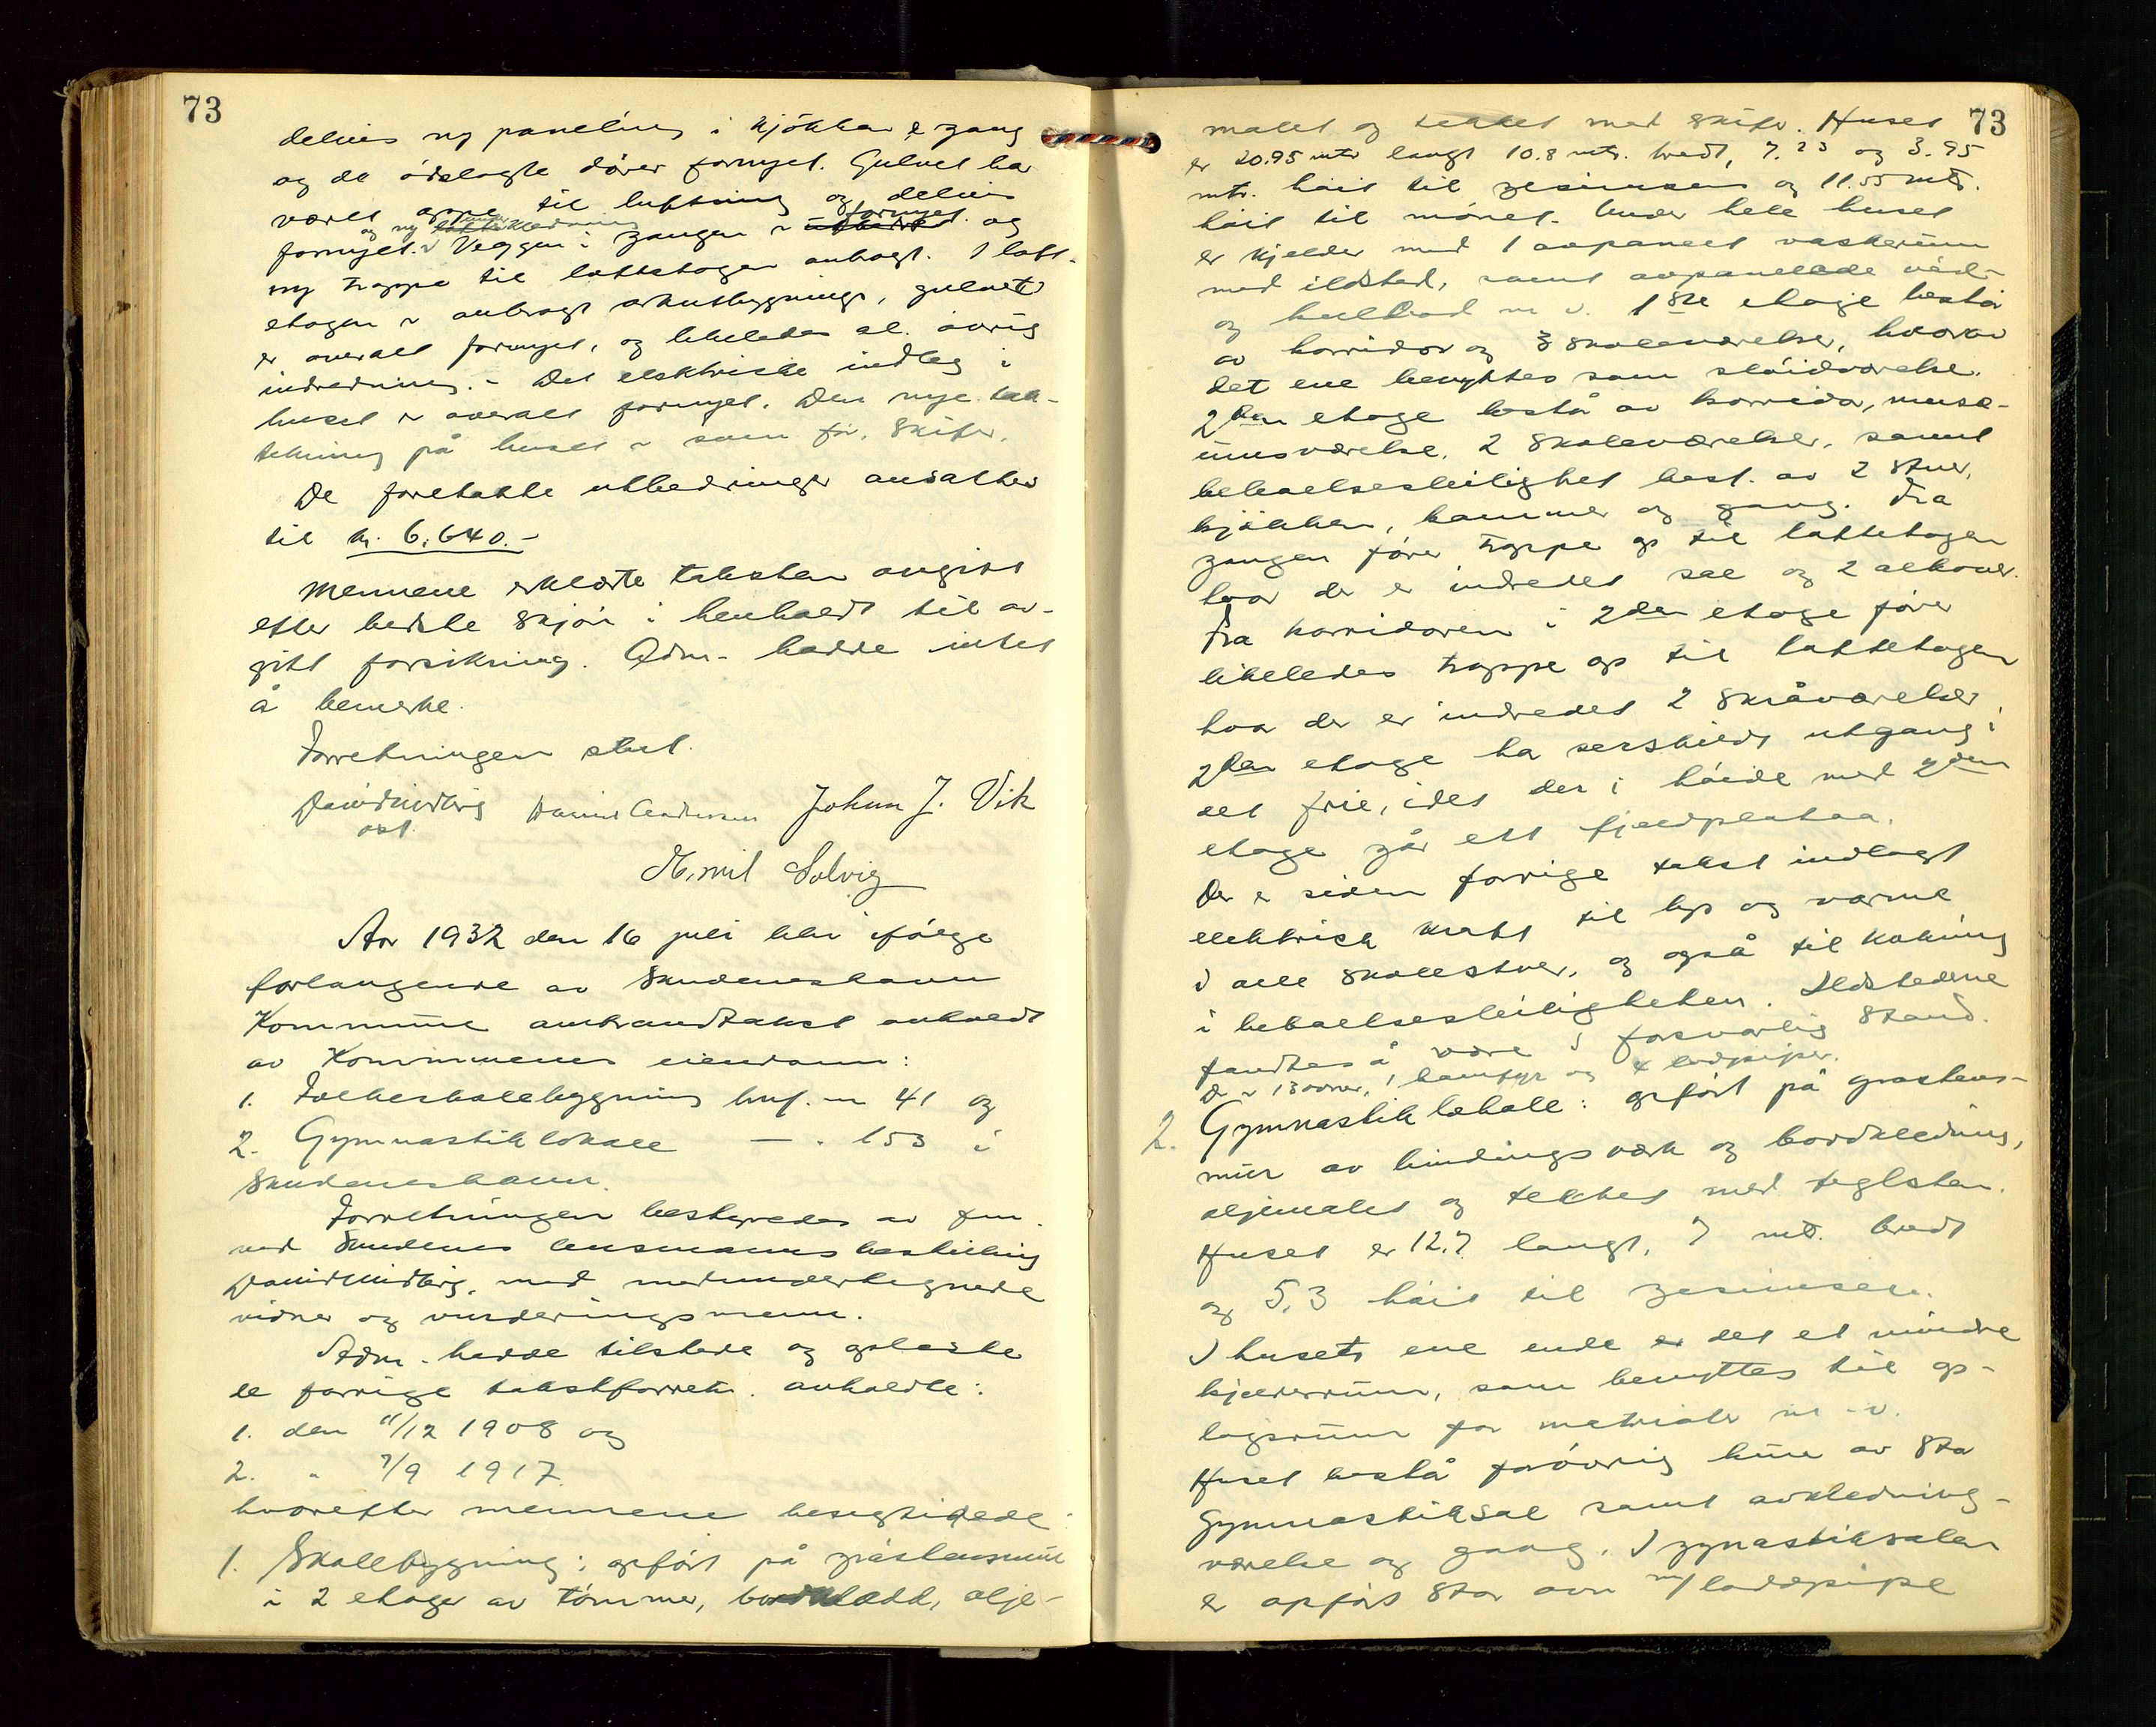 73
delvis ny paneling i kjökken & gang
og de ödelagte dörer fornyet. Gulvet har
været oppe til luftning og delvis
og ny vindus kledning fornyet
fornyet. Veggen i gangen er utbedret og
ny trappe til loftsetagen anbragt. I loft-
etagen er anbragt arkutbygninge, gulvet
er overalt fornyet, og likeledes al övrig
indredning. - Det elektriske indlæg i
huset er overalt fornyet. Den nye tæk-
tekning på huset er som för, skifer.
De foretakte utbedringer ansattes
til kr. 6.640.-
Mennene erklærte taksten avgitt
efter bedste skjön i henhold til av-
gitt forsikring. Adm. hadde intet
å bemerke.
Forretningen slut.
David Midbøig Daniel Andersen Johan J. Vik
ast.
Emil Solvig
Aar 1932 den 16 juli blev ifölge
forlangende av Skudeneshavn
Kommune ombrandtakst avholdt
av Kommunens eiendomm:
1. Folkeskolebygning bnf. nr 41 og
2. Gymnastiklokale — " 153 i
Skudeneshavn.
Forretningen bestyredes av fm.
ved Skudenes lensmannsbestilling
David Midbøig, med medundertegnede
vidner og vurderingsmenn.
Adm. hadde tilstede og oplæste
de forrige takstforretn. avholdte:
1. den 11/12 1908 og
2. " 7/9 1917.
hvorefter mennene besigtigede:
1. Skolebygning: opfört på gråstensmur
i 2 etager av tömmer, bordklædt, olje-
73
malet og tekket med skifer. Huset
er 20.95 mtr langt 10.8 mtr. bredt, 7.23 og 3.95
mtr. höit til gesimsen og 11.55 mtr.
höit til mönet. Under hele huset
er kjelder med 1 avpanelt vaskerum
med ildsted, samt avpanelede ved-
og kulbod m. v. 1ste etage består
av korridor og 3 skoleværelser, hvorav
det ene benyttes som slöidværelse.
2den etage bestå av korridor, muse-
umsværelse, 2 skoleværelser, samt
beboelsesleilighet best. av 2 stuer,
kjökken, kammer og gang. Fra
gangen förer trappe op til loftetagen
hvor der er indredet sal og 2 alkover.
Fra korridoren i 2den etage förer
likeledes trappe op til loftetagen
hvor der er indredet 2 skråværelser
2den etage har serskildt utgang i
det frie, idet der i höide med 2den
etage går ett fjeldplataa.
Der er siden forrige takst indlagt
elektrisk kraft til lys og varme
i alle skolestuer, og også til kokning
i beboelsesleiligheten. Ildstederne
fandtes å være i forsvarlig stand.
Der er 13 ovner, 1 komfyr og 4 lodpiper.
2. Gymnastiklokale: opfört på grastens-
mur av bindingsverk og bordkledning,
oljemalet og tekket med teglsten.
Huset er 12.7 langt, 7 mtr. bredt
og 5,3 höit til gesimsen.
I husets ene ende er det et mindre
kjelderrum, som benyttes til op-
lagsrum for matrialer m. v.
Huset bestå forövrig kun av stor
Gymnastiksal samt avkledning-
værelse og gang. I gynastiksalen
er opfört stor ovn m/ loddpipe